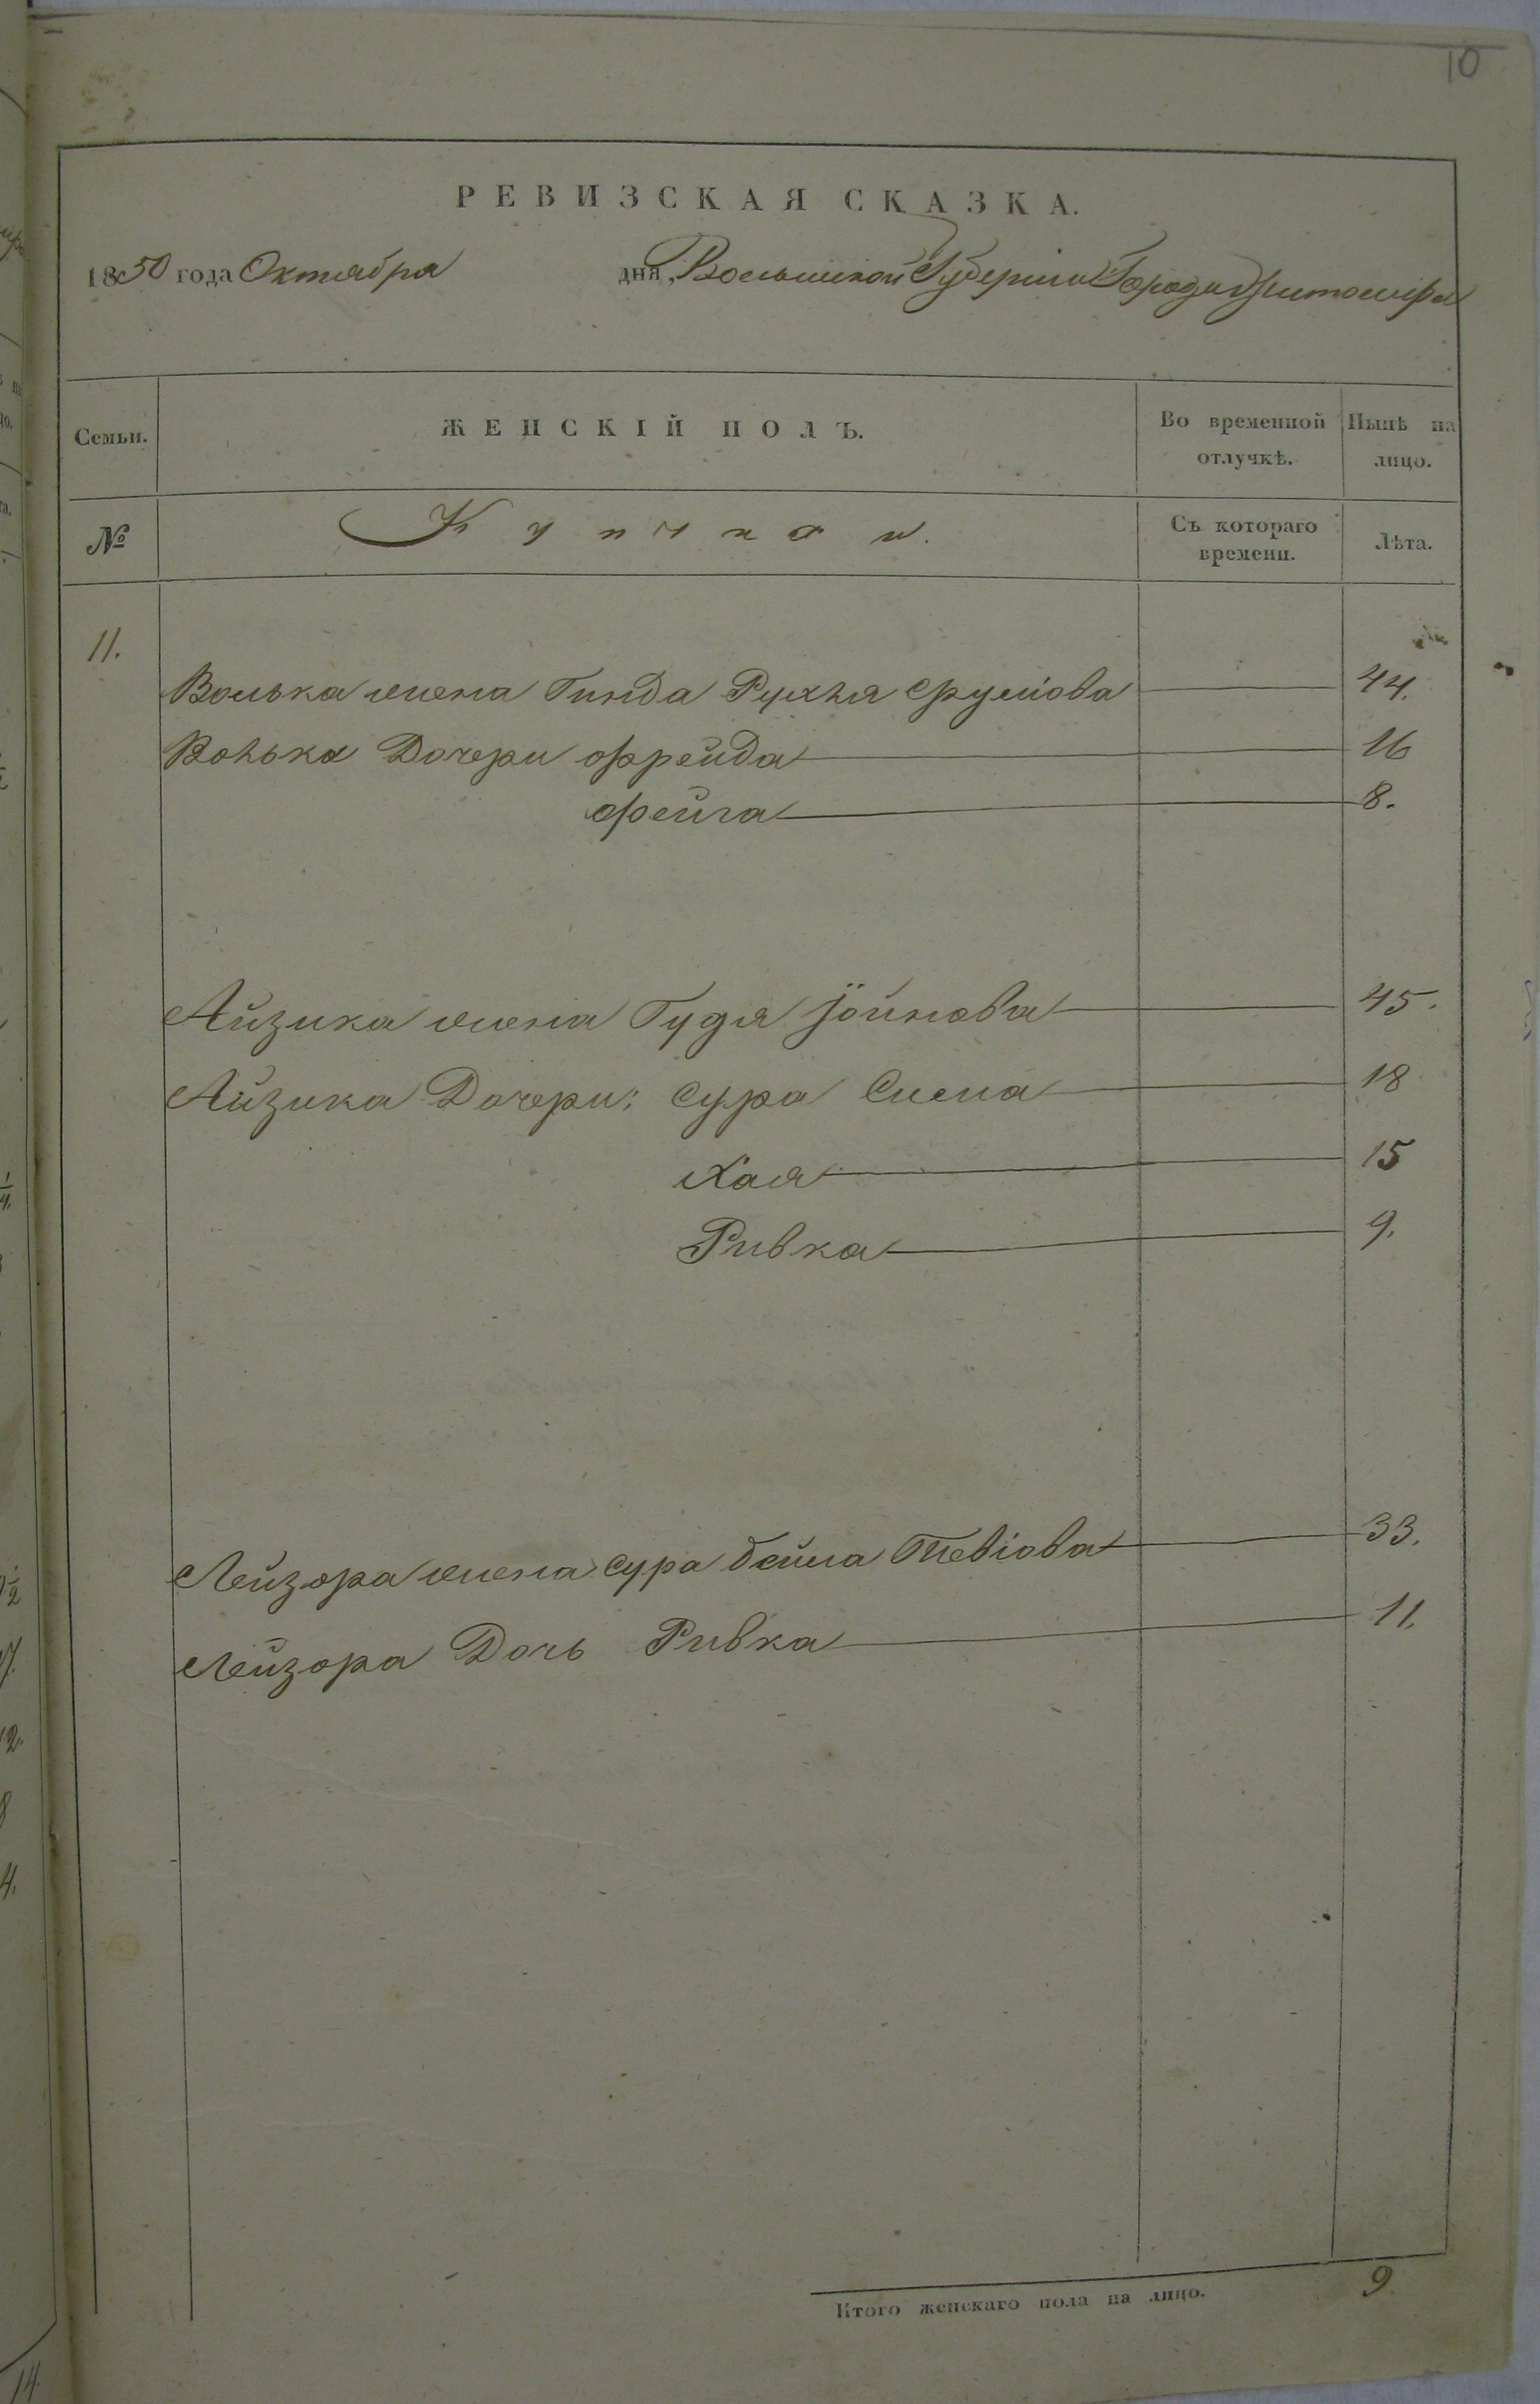 10
РЕВИЗСКАЯ СКАЗКА.
1850 года Октября дня, Волынской Губерніи Города Житоміра
Семьи. ЖЕНСКІЙ ПОЛЪ. Во временной отлучкѣ. Нынѣ на лицо.
№ Съ котораго времени. Лѣта.
11.
Волька жена Гинда Рухля Фрумова 44.
Волька Дочери Фрейда 16
Фейга 8.
Айзика жена Гудя Іойнова 45.
Айзика Дочери: Сура 18
Хая 15
Ривка 9.
Лейзора жена Сура Бейла Тевіова 33.
Лейзора Дочь Ривка 11.
Итого женскаго пола на лицо. 9.